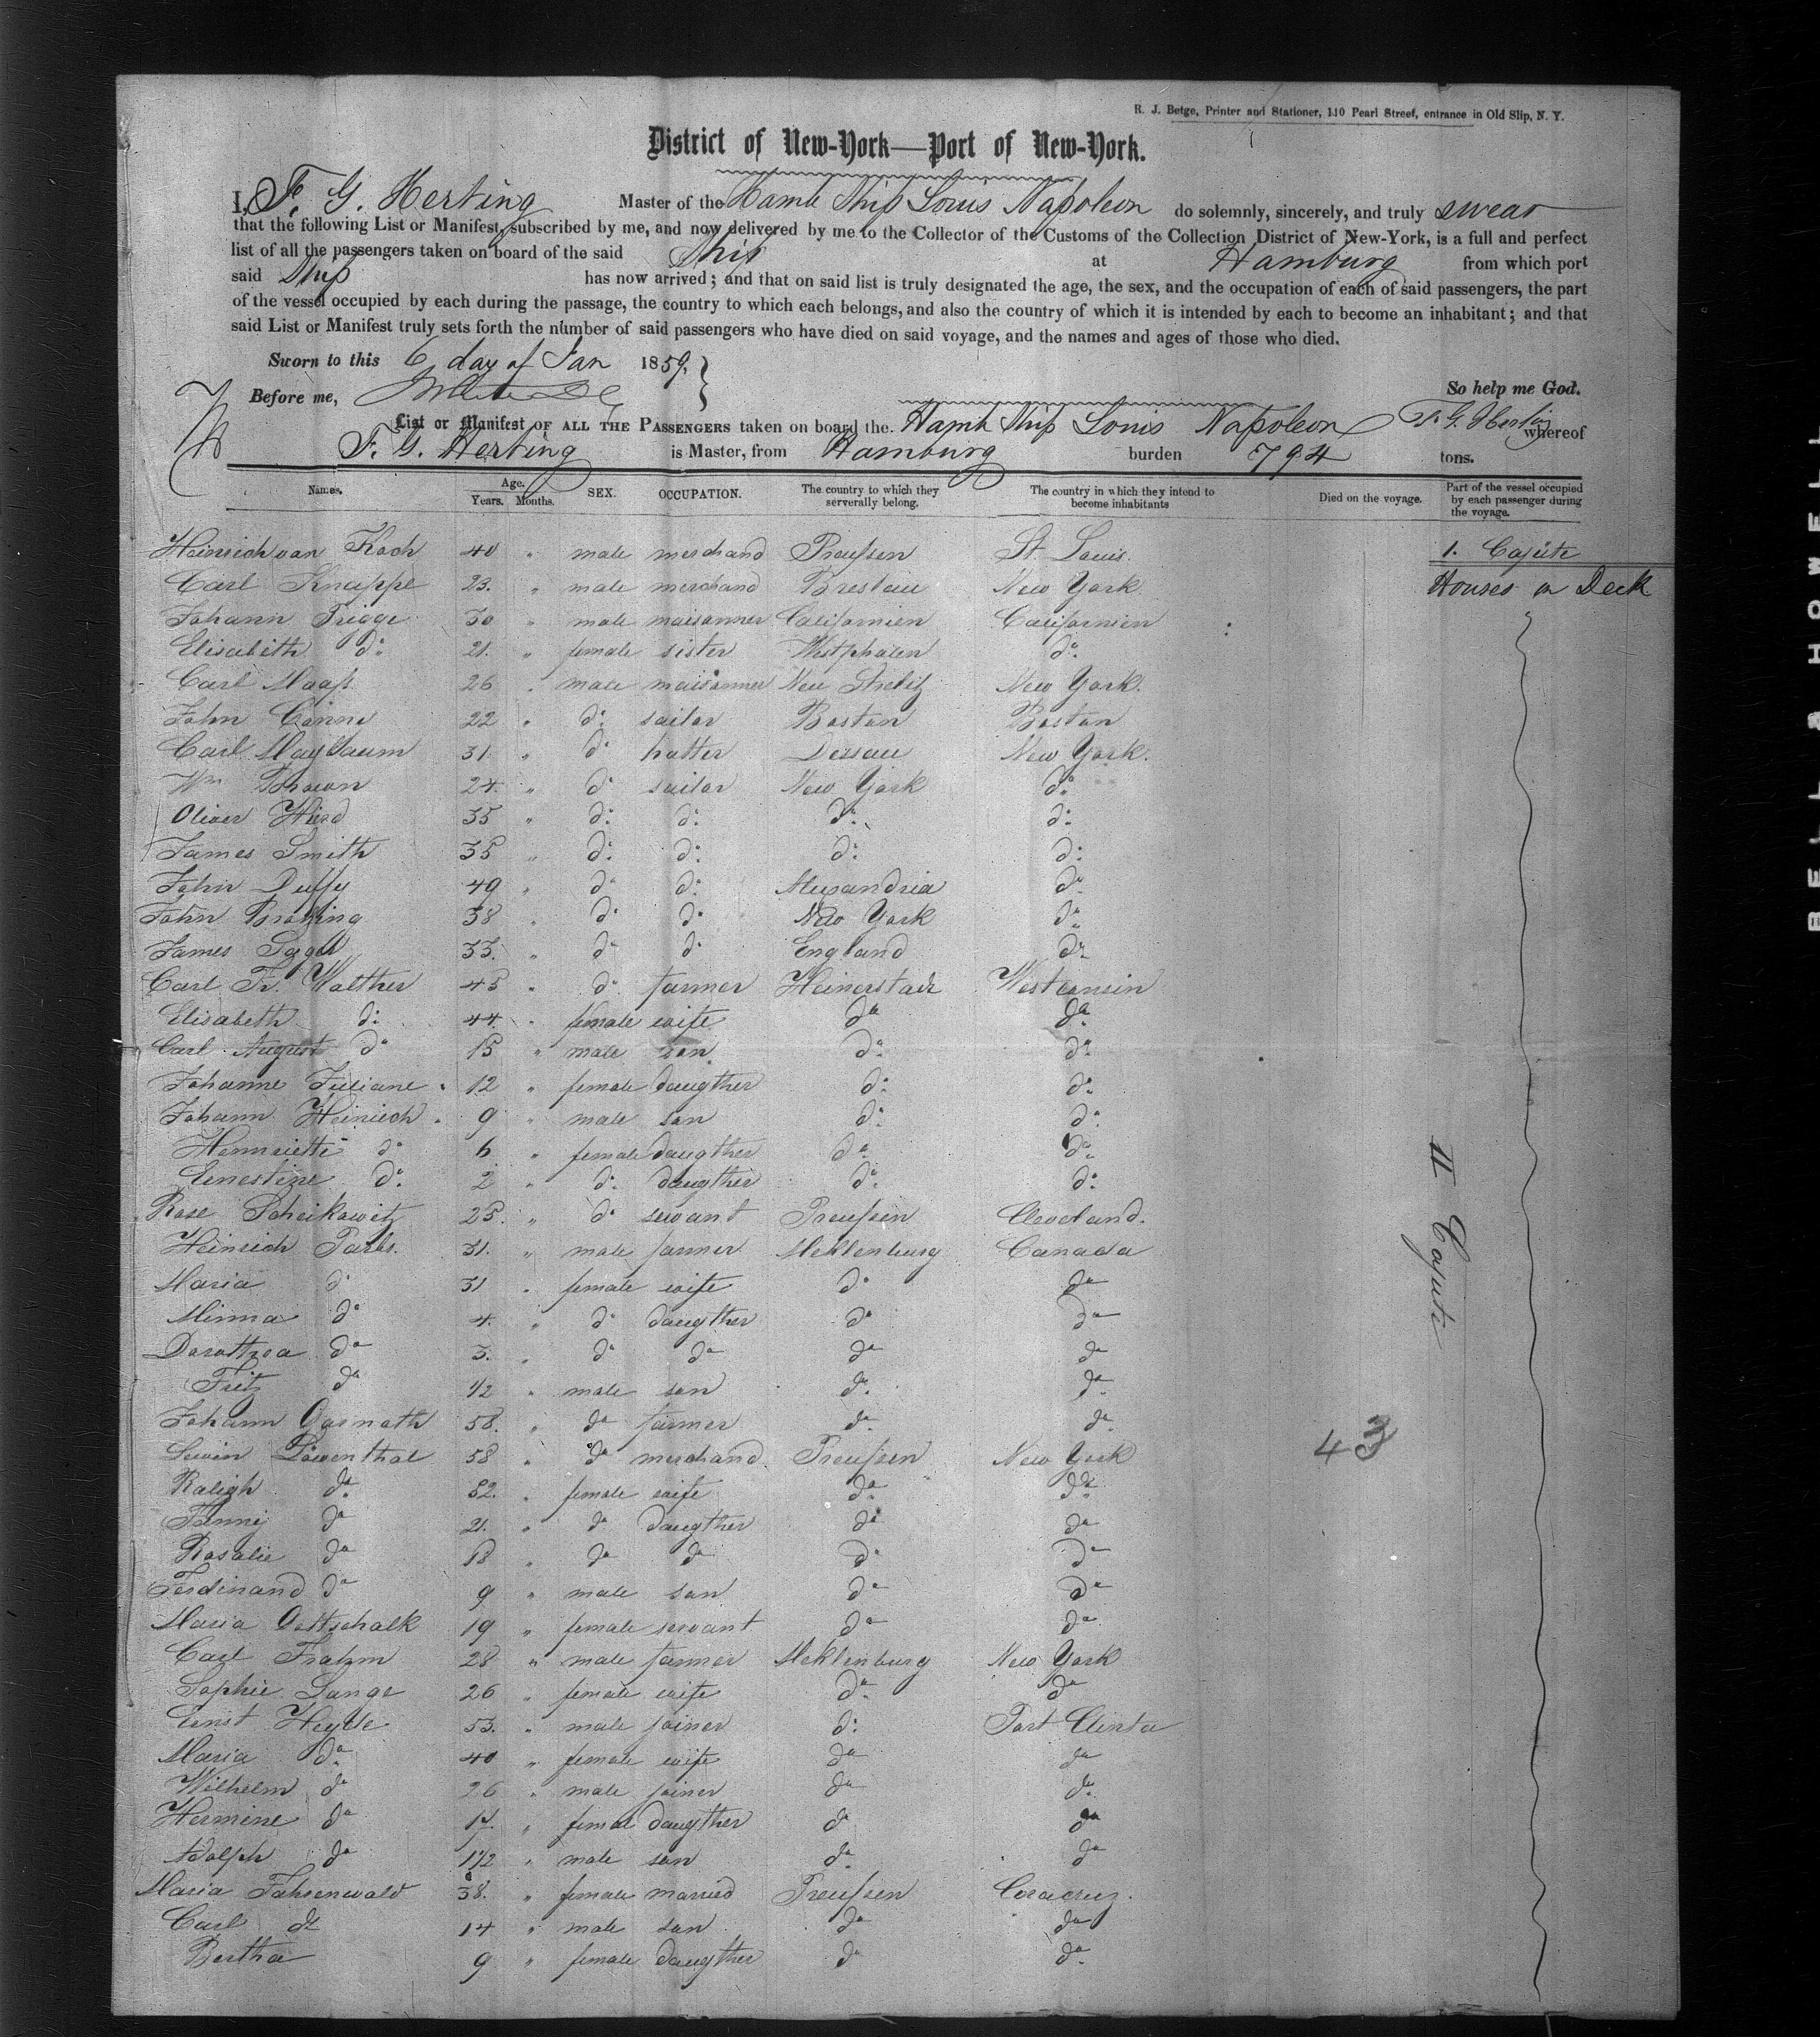 R. J. Betge, Printer and Stationer, 110 Pearl Street, entrance in Old Slip, N. Y.
District of New-York—Port of New-York.
I, F. G. Herting Master of the Hamb Ship Louis Napoleon do solemnly, sincerely, and truly swear
that the following List or Manifest, subscribed by me, and now delivered by me to the Collector of the Customs of the Collection District of New-York, is a full and perfect
list of all the passengers taken on board of the said Ship at Hamburg from which port
said Ship has now arrived; and that on said list is truly designated the age, the sex, and the occupation of each of said passengers, the part
of the vessel occupied by each during the passage, the country to which each belongs, and also the country of which it is intended by each to become an inhabitant; and that
said List or Manifest truly sets forth the number of said passengers who have died on said voyage, and the names and ages of those who died.
Sworn to this 6 day of Jan 1859.
So help me God.
Before me,
F. G. Herting
List or Manifest OF ALL THE PASSENGERS taken on board the Hamb Ship Louis Napoleon whereof
F. G. Herting is Master, from Hamburg burden 794 tons.
Names. Age. Years. Months. SEX. OCCUPATION. The country to which they serverally belong. The country in which they intend to become inhabitants Died on the voyage. Part of the vessel occupied by each passenger during the voyage.
Heinrich van Koch 40 " male merchand Preussen St. Louis. 1. Cajüte
Carl Knappe 23. " male merchand Breslau New York. Houses on Deck
Johann Trigge 30 " male Californien Californien
Elisabeth do 21. " female sister Westphalen do
Carl Maass 26 " male New Strelitz New York.
John 22 " do sailor Boston Boston
Carl Maybaum 31. " do hatter Dessau New York.
Wm 24. " do sailor New York do
Oliver 35 " do do do do
James Smith 35 " do do do do
John Duffy 49 " do do Alexandria do
John 38 " do do New York do
James 33. " do do England do
Carl Fr. Walther 45 " do farmer Westconsin
Elisabeth do 44. " female wife do do
Carl August do 15 " male son do do
Johanne Juliane " 12 " female daugther do do
Johann Heinrich " 9 " male son do do
Henriette do 6 " female daugther do do
Ernestine do 2 " do daugther do do
Rose Scheikowitz 25. " do servant Preussen Cleveland.
Heinrich 31. " male farmer Meklenburg Canada
Maria do 31 " female wife do do
Minna do 4. " do daugther do do
Dorothea do 3. " do do do do
Fritz do 1/2 " male son do do
Johann 58. " do farmer do do
Löwenthal 58 " do merchand Preussen New York 43
do 52. " female wife do do
Fanny do 21. " do daugther do do
Rosalie do 18 " do do do do
Ferdinand do 9 " male son do do
Maria Gottschalk 19 " female servant do do
Carl Frahm 28 " male farmer Meklenburg New York
Sophie Lange 26 " female wife do do
Ernst Heyde 53. " male joiner do Port Clinta
Maria do 40 " female wife do do
Wilhelm do 26 " male joiner do do
Hermine do 17. " femal daugther do do
Adolph do 1 1/2 " male son do do
Maria Fahrenwald 38. " female married Preussen
Carl do 14 " male son do do
Bertha 9 " female daugther do do
II Cajüte
BELL & HOWELL